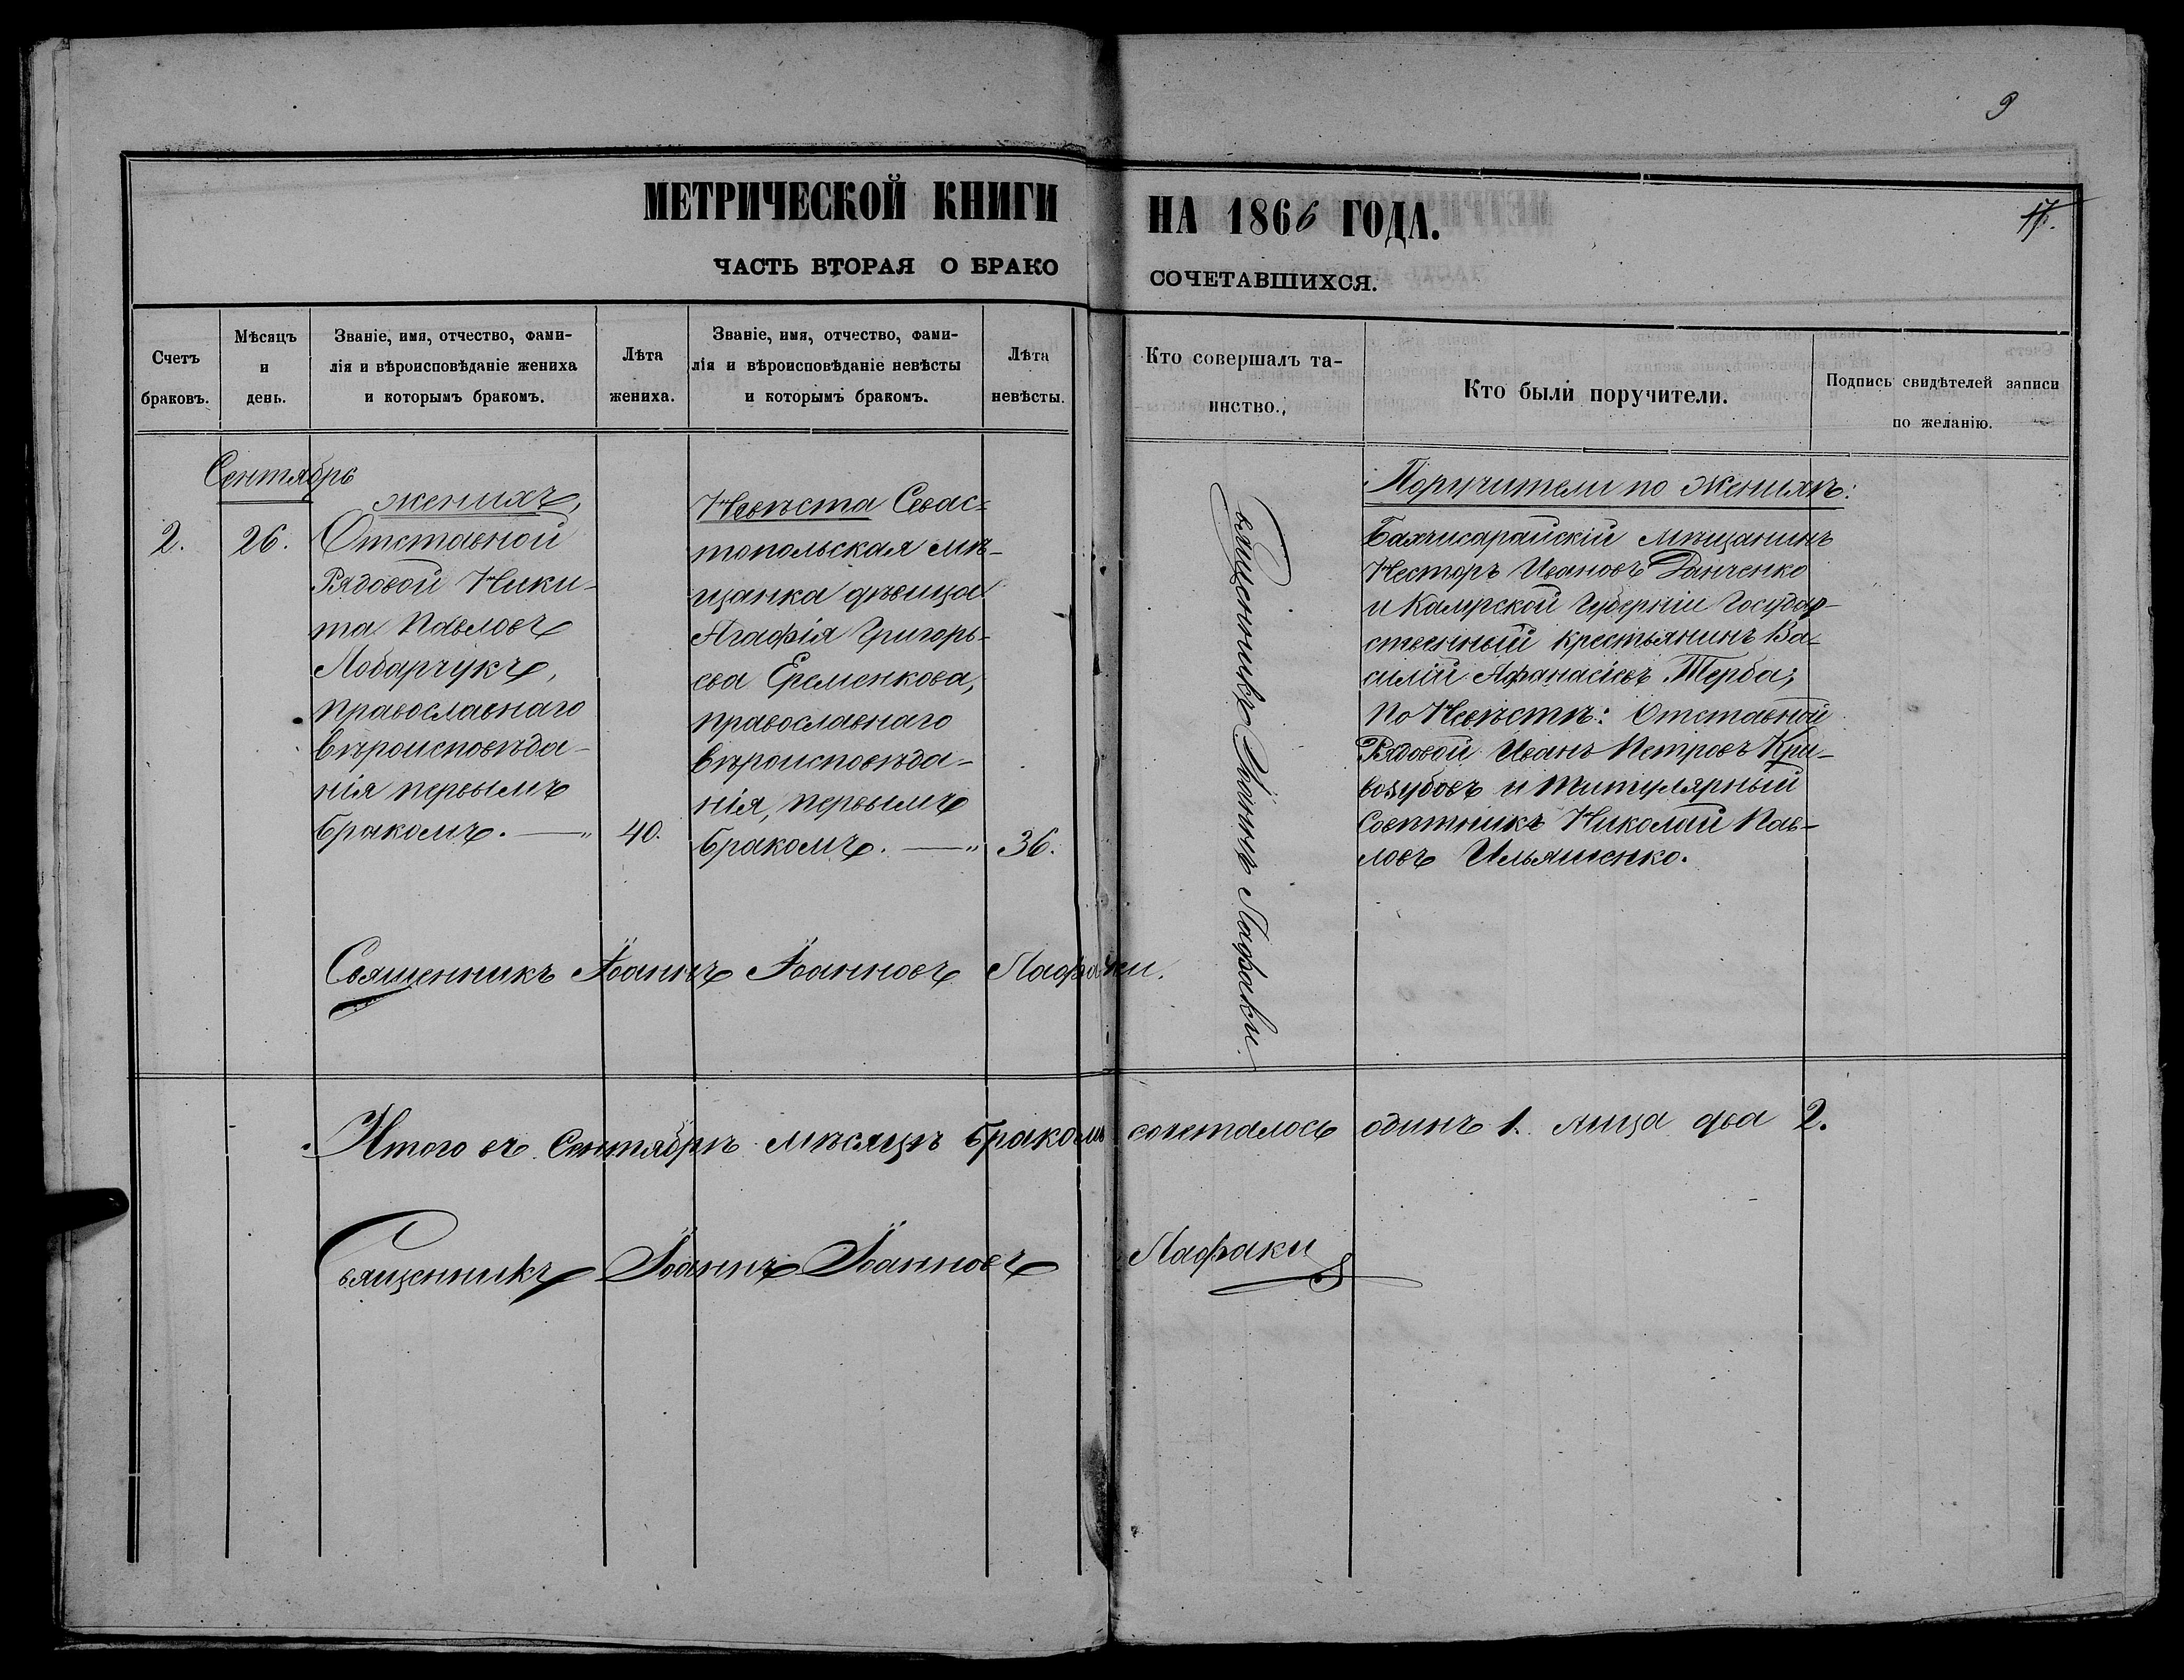 9
МЕТРИЧЕСКОЙ КНИГИ НА 1866 ГОДА.
17.
ЧАСТЬ ВТОРАЯ О БРАКО СОЧЕТАВШИХСЯ.
Счетъ
браковъ.
Мѣсяцъ
и
день.
Званіе, имя, отчество, фами-
лія и вѣроисповѣданіе жениха
и которымъ бракомъ.
Лѣта
жениха.
Званіе, имя, отчество, фами-
лія и вѣроисповѣданіе невѣсты
и которымъ бракомъ.
Лѣта
невѣсты.
Кто совершалъ та-
инство.
Кто были поручители.
Подпись свидѣтелей записи
по желанію.
Сентябрь
2.
26.
женихъ,
Отставной
Рядовой Ники-
та Павловъ
Лобарчукъ,
православнаго
вѣроисповѣда-
нія первымъ
бракомъ. — „
40.
Невѣста Севас-
топольская мѣ-
щанка дѣвица
Агафія Григорь-
ева Еременкова,
православнаго
вѣроисповѣда-
нія, первымъ
бракомъ. — „
36.
Священникъ Іоаннъ Лафаки.
Поручители по Женихѣ:
Бахчисарайскій мѣщанинъ
Несторъ Ивановъ Данченко
и Губерніи Государ-
ственный крестьянинъ Ва-
силій Афанасіевъ Терба;
по Невѣстѣ: Отставной
Рядовой Иванъ Петровъ Кри-
возубовъ и Титулярный
Совѣтникъ Николай Пав-
ловъ Ильяшенко.
Священникъ Іоаннъ Іоанновъ Лафаки.
Итого въ Сентябрѣ мѣсяцѣ бракомъ сочеталось одинъ 1. лица два 2.
Священникъ Іоаннъ Іоанновъ Лафаки